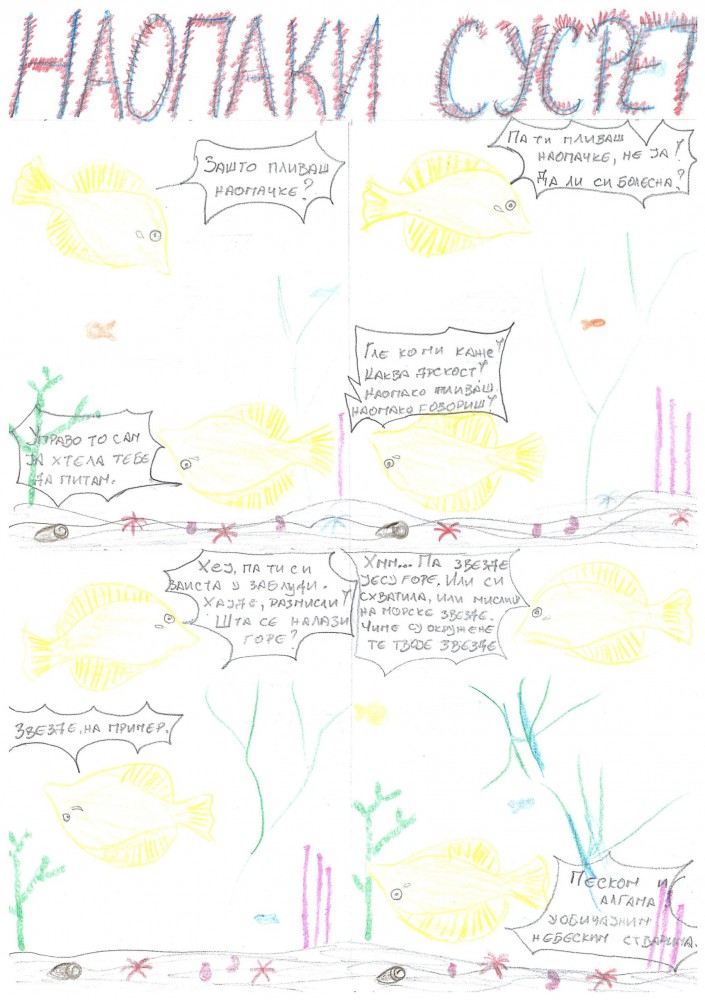 НАОПАКИ СУСРЕТ
ЗАШТО ПЛИВАШ
НАОПАЧКЕ?
УПРАВО ТО САМ
ЈА ХТЕЛА ТЕБЕ
ДА ПИТАМ.
ПА ТИ ПЛИВАШ
НАОПАЧКЕ, НЕ ЈА!
ДА ЛИ СИ БОЛЕСНА?
ГЛЕ КО МИ КАЖЕ!
КАКВА ДРСКОСТ!
НАОПАКО ПЛИВАШ,
НАОПАКО ГОВОРИШ!
ХЕЈ, ПА ТИ СИ
ЗАИСТА У ЗАБЛУДИ.
ХАЈДЕ, РАЗМИСЛИ!
ШТА СЕ НАЛАЗИ
ГОРЕ?
ЗВЕЗДЕ, НА ПРИМЕР.
ХММ... ПА ЗВЕЗДЕ
ЈЕСУ ГОРЕ. ИЛИ СИ
СХВАТИЛА, ИЛИ МИСЛИШ
НА МОРСКЕ ЗВЕЗДЕ.
ЧИМЕ СУ ОКРУЖЕНЕ
ТЕ ТВОЈЕ ЗВЕЗДЕ
ПЕСКОМ И
АЛГАМА!
УОБИЧАЈНИМ
НЕБЕСКИМ СТВАРИМА.